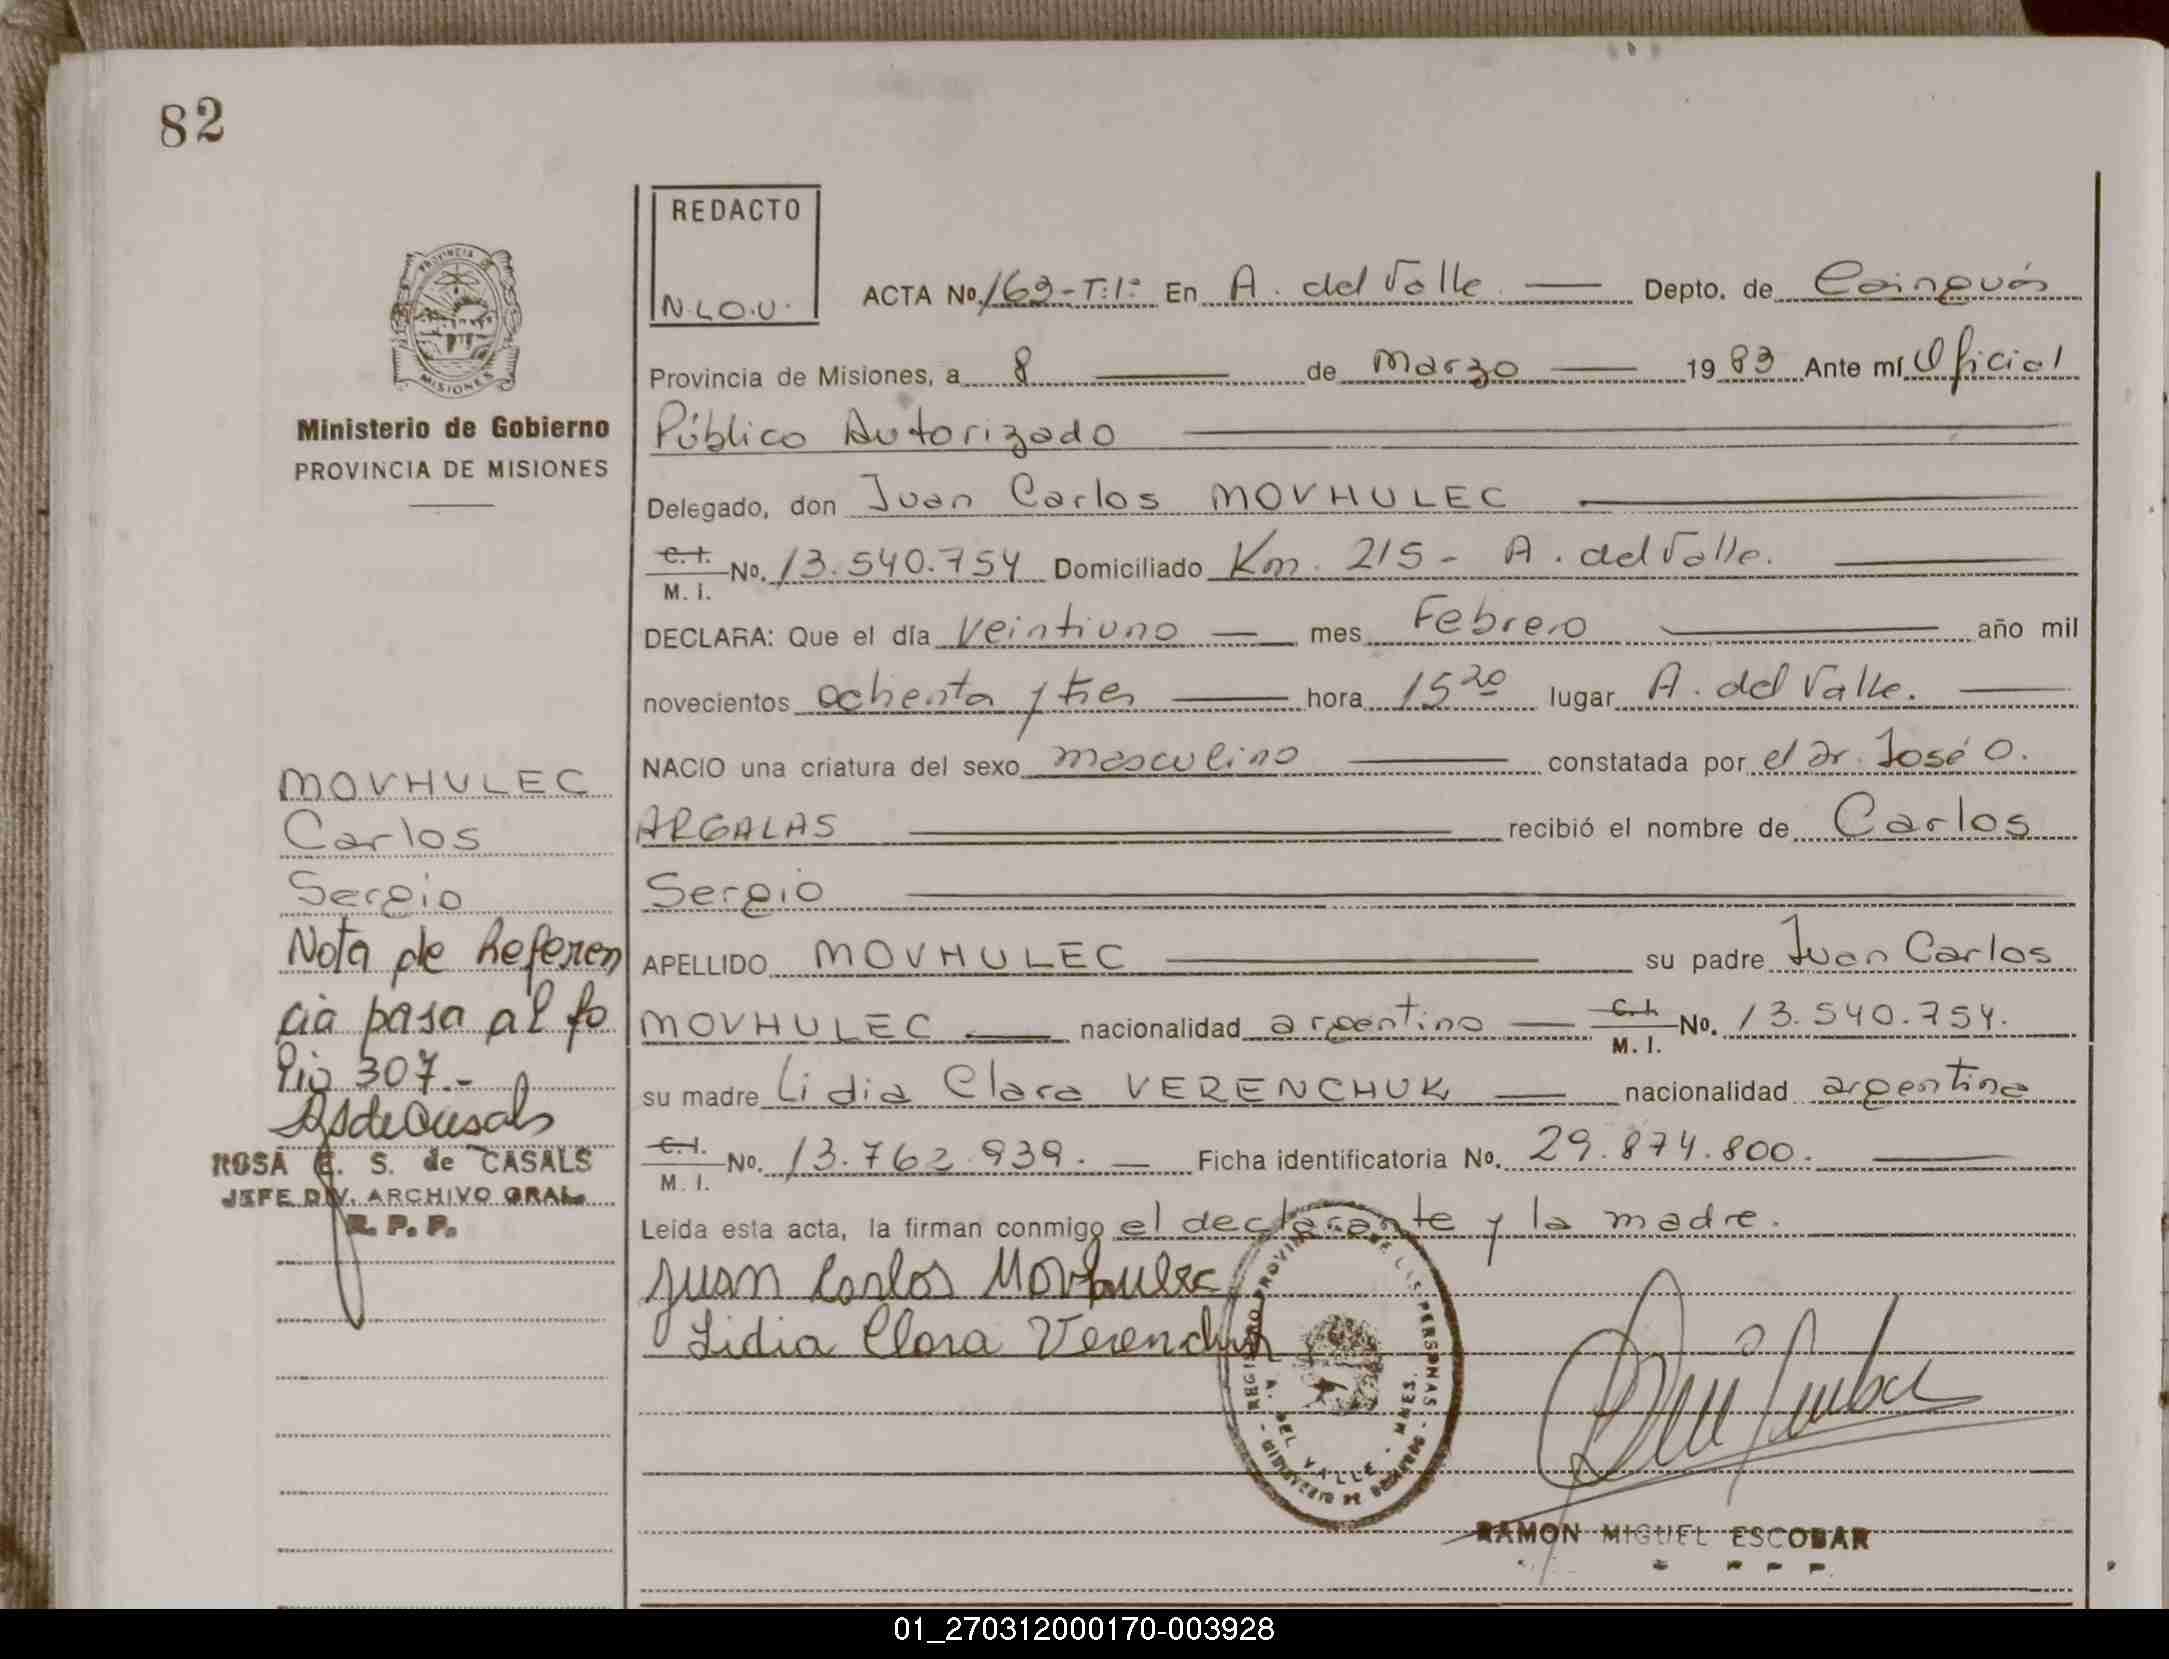 82
REDACTO
N.LO.U.
ACTA No. 169-T:1º En A. del Valle Depto. de Cainguás
Provincia de Misiones, a 8 de Marzo 1983 Ante mí Oficial
Público Autorizado
Delegado, don Juan Carlos MOVHULEC
C.I. M. I. No. 13.540.754 Domiciliado Km. 215 - A. del Valle.
DECLARA: Que el día Veintiuno mes Febrero año mil
novecientos ochenta y tres hora 15 20 lugar A. del Valle.
NACIO una criatura del sexo masculino constatada por el Dr. José O.
ARGALAS recibió el nombre de Carlos
Sergio
APELLIDO MOVHULEC su padre Juan Carlos
MOVHULEC nacionalidad argentino C.I. M. I. No. 13.540.754.
su madre Lidia Clara VERENCHUK nacionalidad argentina
C.I. M. I. No. 13.762.939. Ficha identificatoria No. 29.874.800.
Leída esta acta, la firman conmigo el declarante y la madre.
Juan Carlos Movhulec
Lidia Clara Verenchuk
PROVINCIA
MISIONES
Ministerio de Gobierno
PROVINCIA DE MISIONES
MOVHULEC
Carlos
Sergio
Nota de Referen
cia pasa al fo
lio 307.-
ROSA E. S. de CASALS
JEFE DIV. ARCHIVO GRAL.
R. P. P.
REGISTRO PROVINCIAL DE LAS PERSONAS
A. DEL VALLE - MNES.
RAMON MIGUEL ESCOBAR
01_270312000170-003928